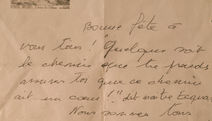 Bonne fête à
vous tous ! Quelque soit
le chemin que tu prends
assure toi que ce chemin
ait un cœur ! " dit notre
Nous sommes tous